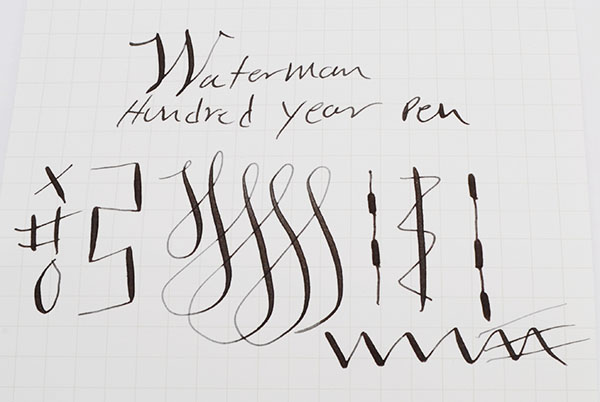 Waterman
Hundred Year Pen
X
#
O